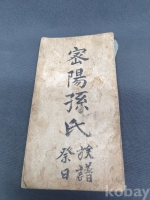 密陽孫氏
授譜
祭日
kobay